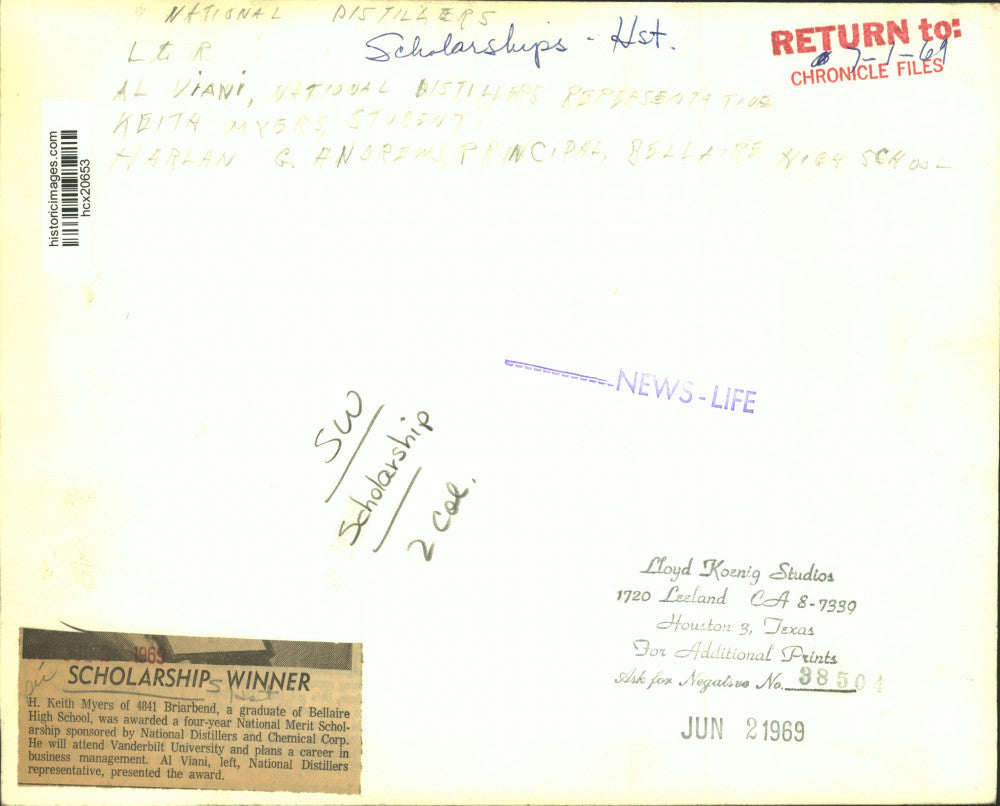 NATIONAL DISTILLERS
Scholarships - Hst.
RETURN to:
7-1-69
CHRONICLE FILES
L t R
AL VIANI, NATIONAL DISTILLERS REPRESENTATIVE
KEITH MYERS, STUDENT
HARLAN G. ANDREWS PRINCIPAL, BELLAIRE HIGH SCHOOL
historicimages.com
hcx20653
NEWS-LIFE
SW
Scholarship
2 Col.
Lloyd Koenig Studios
1720 Leeland CA 8-7339
Houston 3, Texas
For Additional Prints
Ask for Negative No. 38504
JUN 21969
1969
SCHOLARSHIP WINNER
S Hst
H. Keith Myers of 4841 Briarbend, a graduate of Bellaire
High School, was awarded a four-year National Merit Schol-
arship sponsored by National Distillers and Chemical Corp.
He will attend Vanderbilt University and plans a career in
business management. Al Viani, left, National Distillers
representative, presented the award.